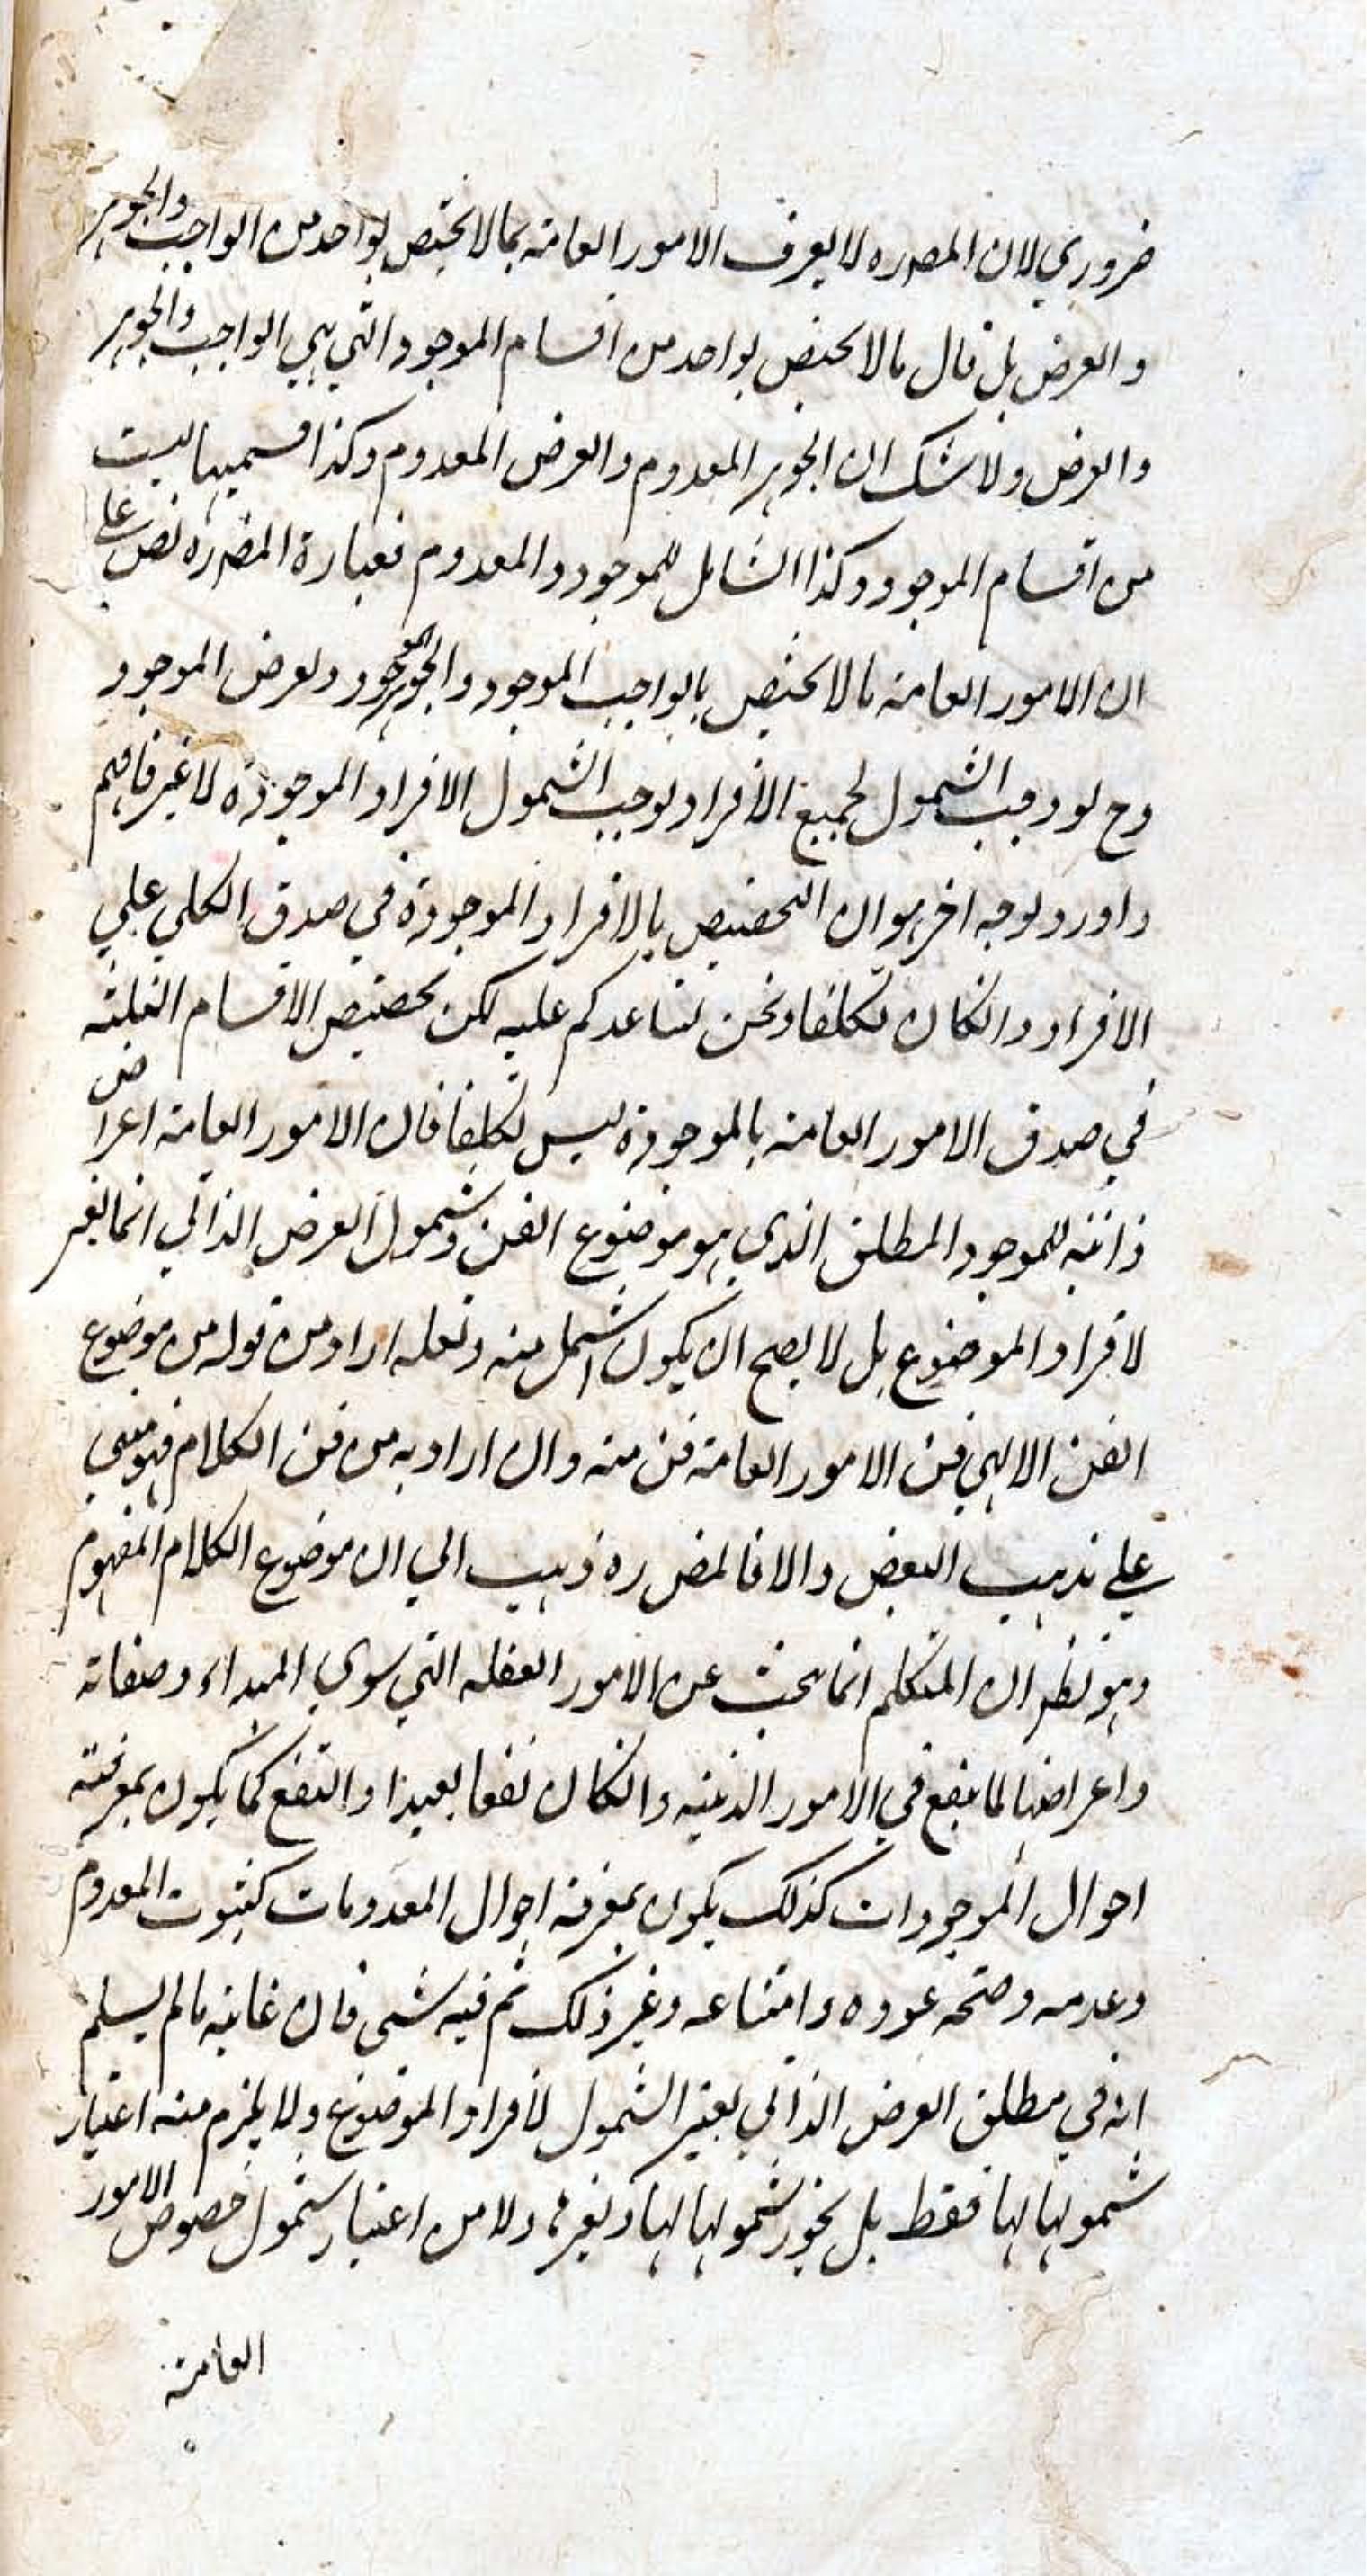 ضروري لان المصره لا يعرف الامور العامة بما لا يختص بواحد من الواجب والجوهر
والعرض بل قال ما لا يختص بواحد من اقسام الموجود التي هي الواجب والجوهر
والعرض ولا شك ان الجوهر المعدوم والعرض المعدوم وكذا قسميهما ليست
من اقسام الموجود وكذا الشامل للموجود والمعدوم فعبارة المصره نص على
ان الامور العامة ما لا يختص بالواجب الموجود والجوهر الموجود والعرض الموجود
وح لو وجب الشمول لجميع الافراد لوجب الشمول الافراد الموجودة لا غير فافهم
واورد بوجه اخر هو ان التخصيص بالافراد الموجودة في صدق الكلي علي
الافراد وانكان تكلفا ونحن نساعدكم عليه لكن تخصيص الاقسام الثلثة
في صدق الامور العامة بالموجودة ليس تكلفا فان الامور العامة اعراض
ذاتية للموجود المطلق الذي هو موضوع الفن وشمول العرض الذاتي انما يعتبر
لافراد الموضوع بل لا يصح ان يكون اشمل منه ولعله اراد من قوله من موضوع
الفن الالهي فن الامور العامة فن منه وان اراد به من فن الكلام فهو مبني
علي مذهب البعض والا فالمص ره ذهب الي ان موضوع الكلام المفهوم
وهو نظر ان المتكلم انما يبحث عن الامور العقلية التي سوي المبداء وصفاته
واعراضها لما ينفع في الامور الدينية وانكان نفعا بعيدا والنفع كما يكون بمعرفة
احوال الموجودات كذلك يكون بمعرفة احوال المعدومات كثبوت المعدوم
وعدمه وصحة عوده وامتناعه وغير ذلك ثم فيه شئ فان غايته ما لم يسلم
انه في مطلق العرض الذاتي يعتبر الشمول لافراد الموضوع ولا يلزم منه اعتبار
شمولها لها فقط بل يجوز شمولها لها ولغيرها ولا من اعتبار شمول خصوص الامور
العامة